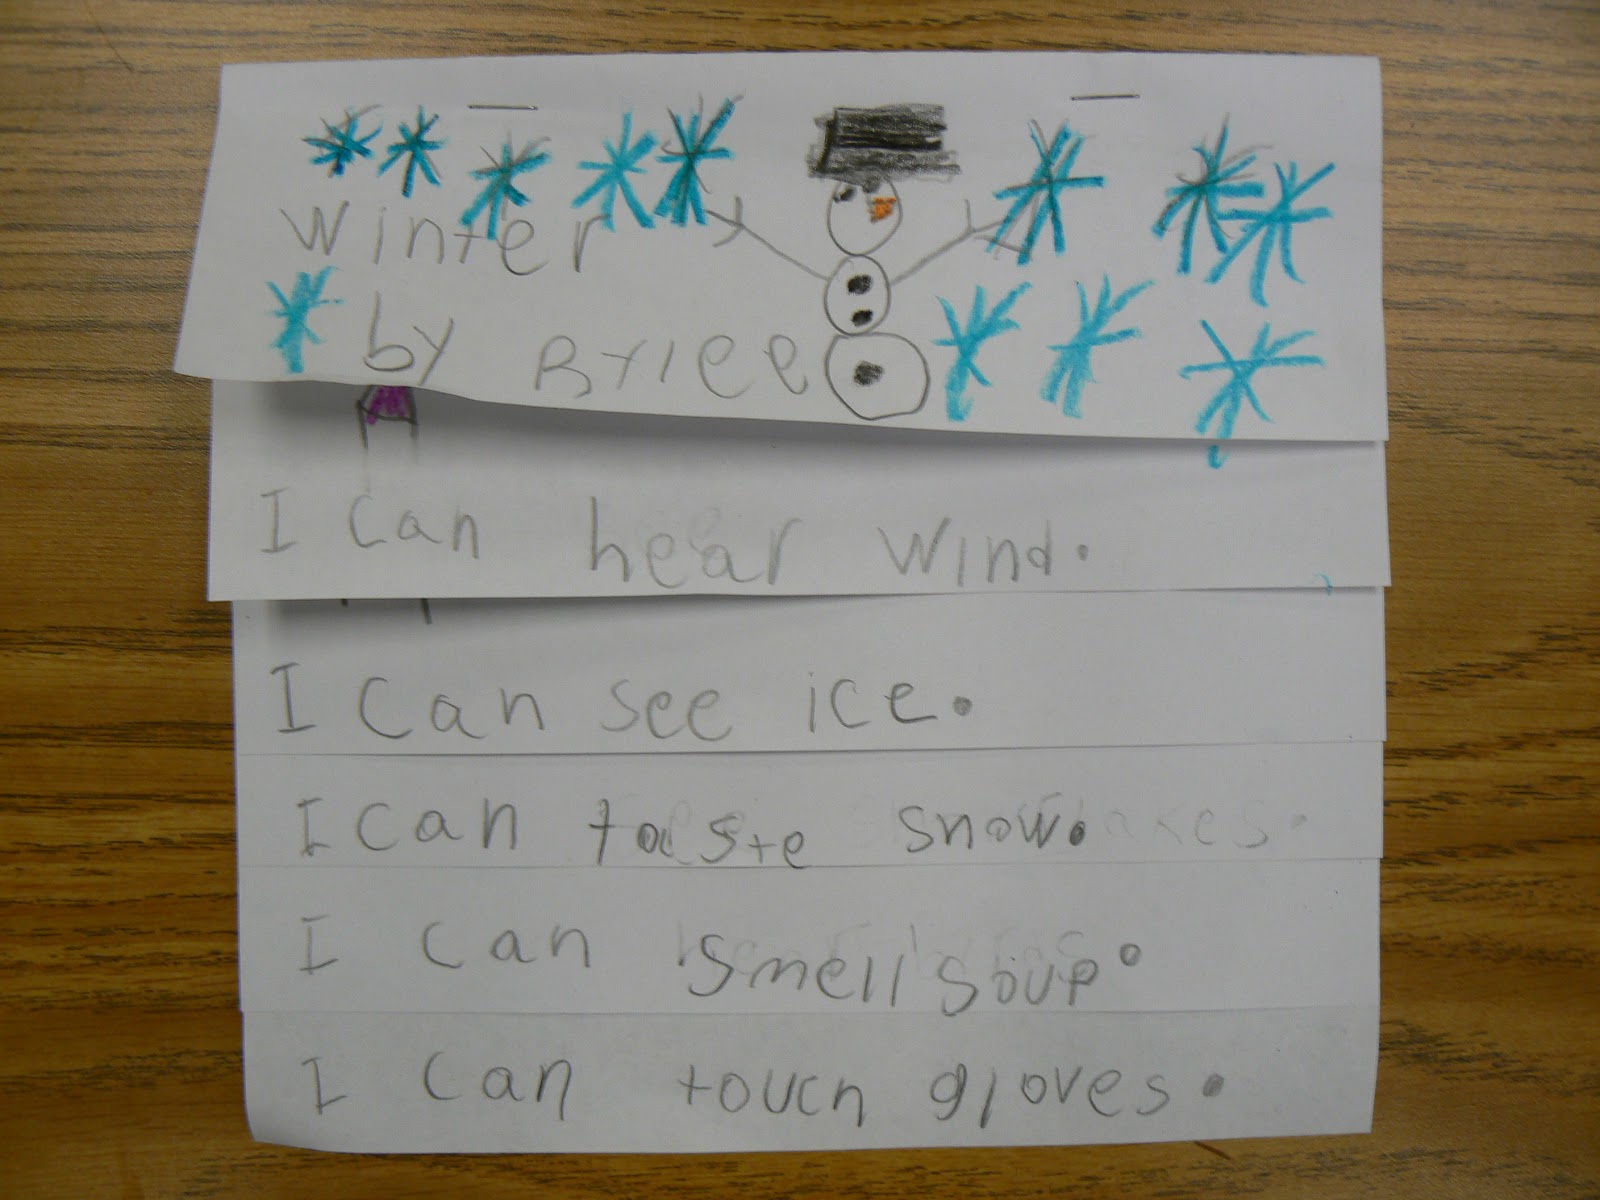 winter
by Brlee
I can hear wind.
I can see ice.
I can taste snow.
I can smell soup.
I can touch gloves.